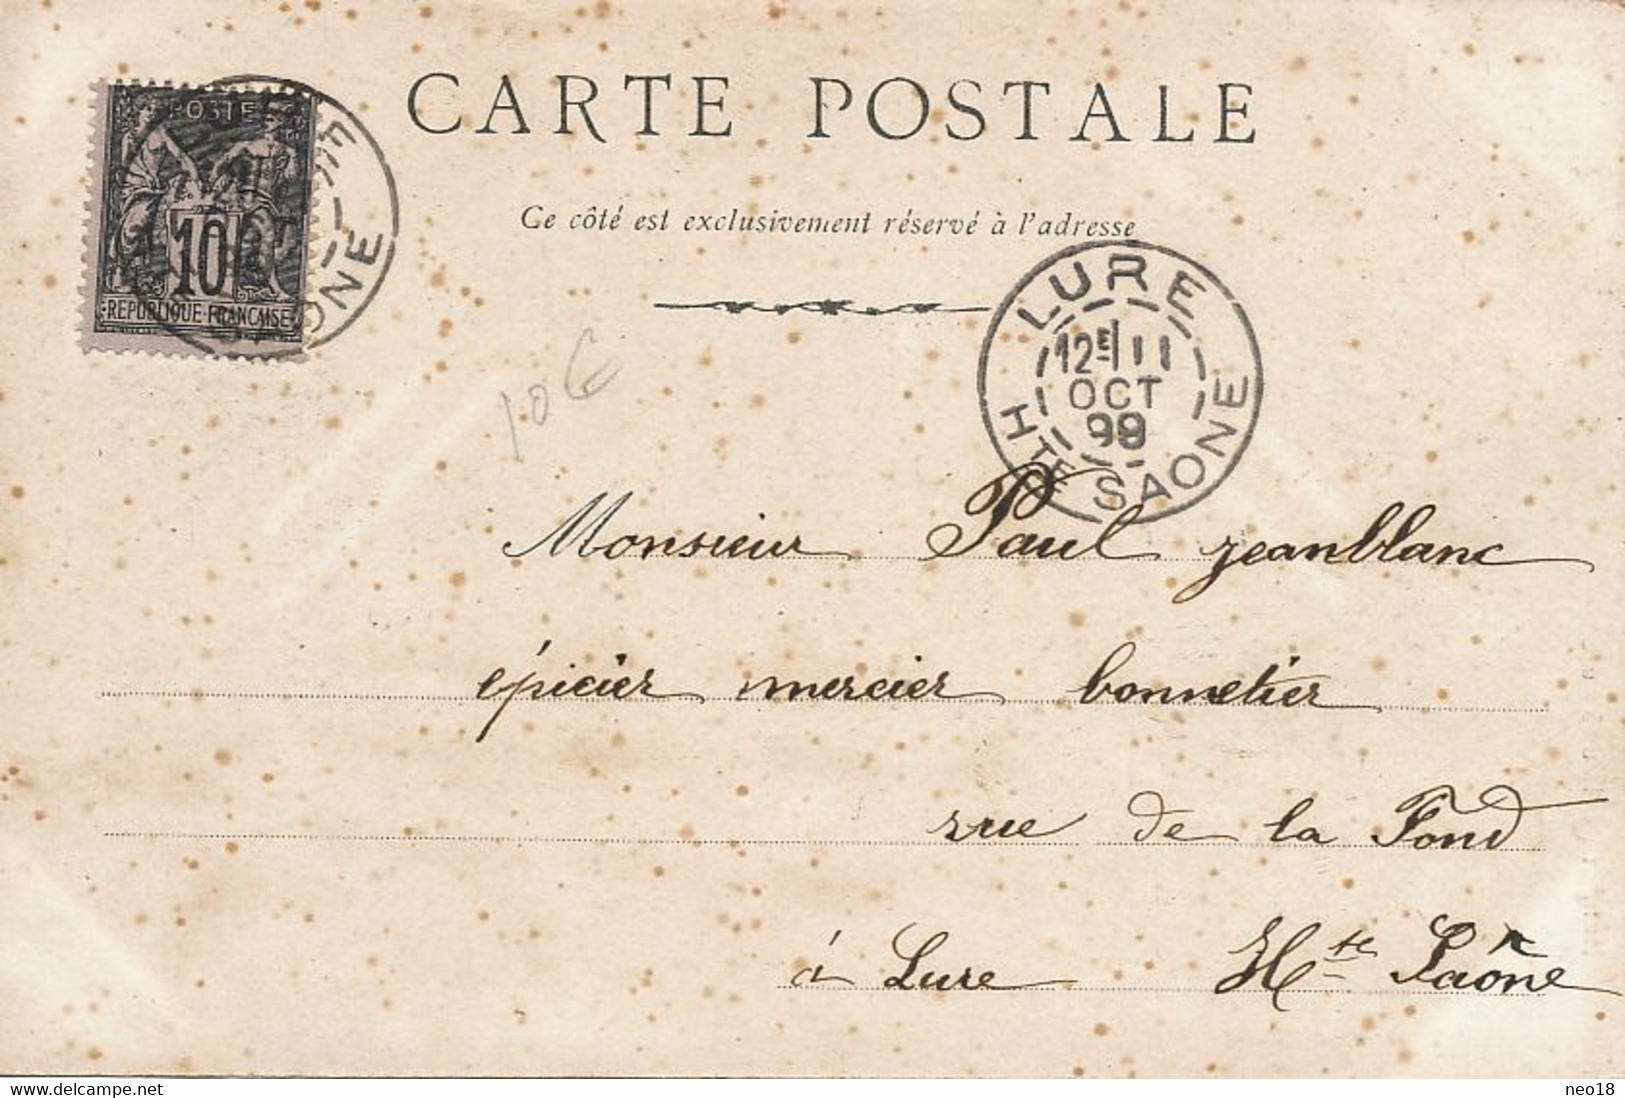 CARTE POSTALE
Ce côté est exclusivement réservé à l'adresse
POSTE
10
REPUBLIQUE FRANÇAISE
LURE
12E 11
OCT
99
HTE SAONE
10 €
Monsieur Paul Jeanblanc
épicier mercier bonnetier
rue de la Fond
à Lure Hte Saône
delcampe.net
neo18